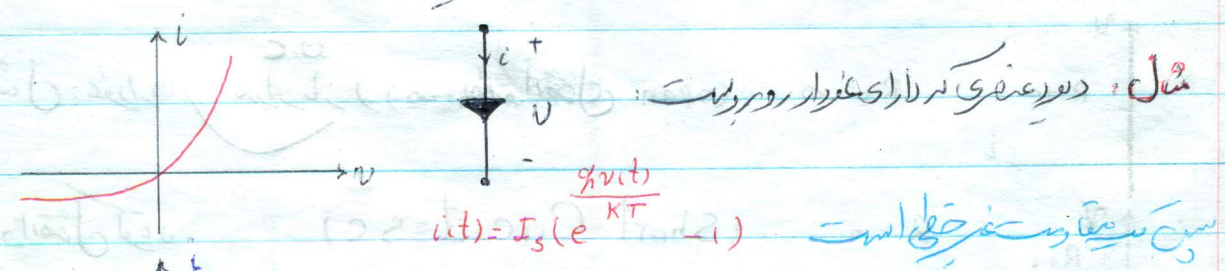 i
i +
v
-
v
مثال: دیود عنصری که دارای نمودار روبروست:
i(t) = I_s (e^{\frac{qv(t)}{KT}} - 1)
پس یک مقاومت غیرخطی است